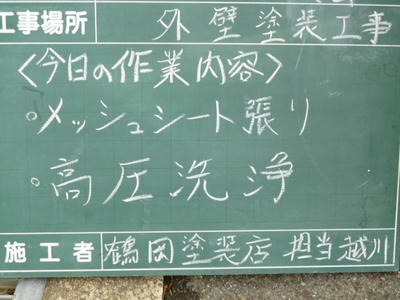 工事場所 外壁塗装工事
〈今日の作業内容〉
・メッシュシート張り
・高圧洗浄
施工者 鶴岡塗装店 担当越川